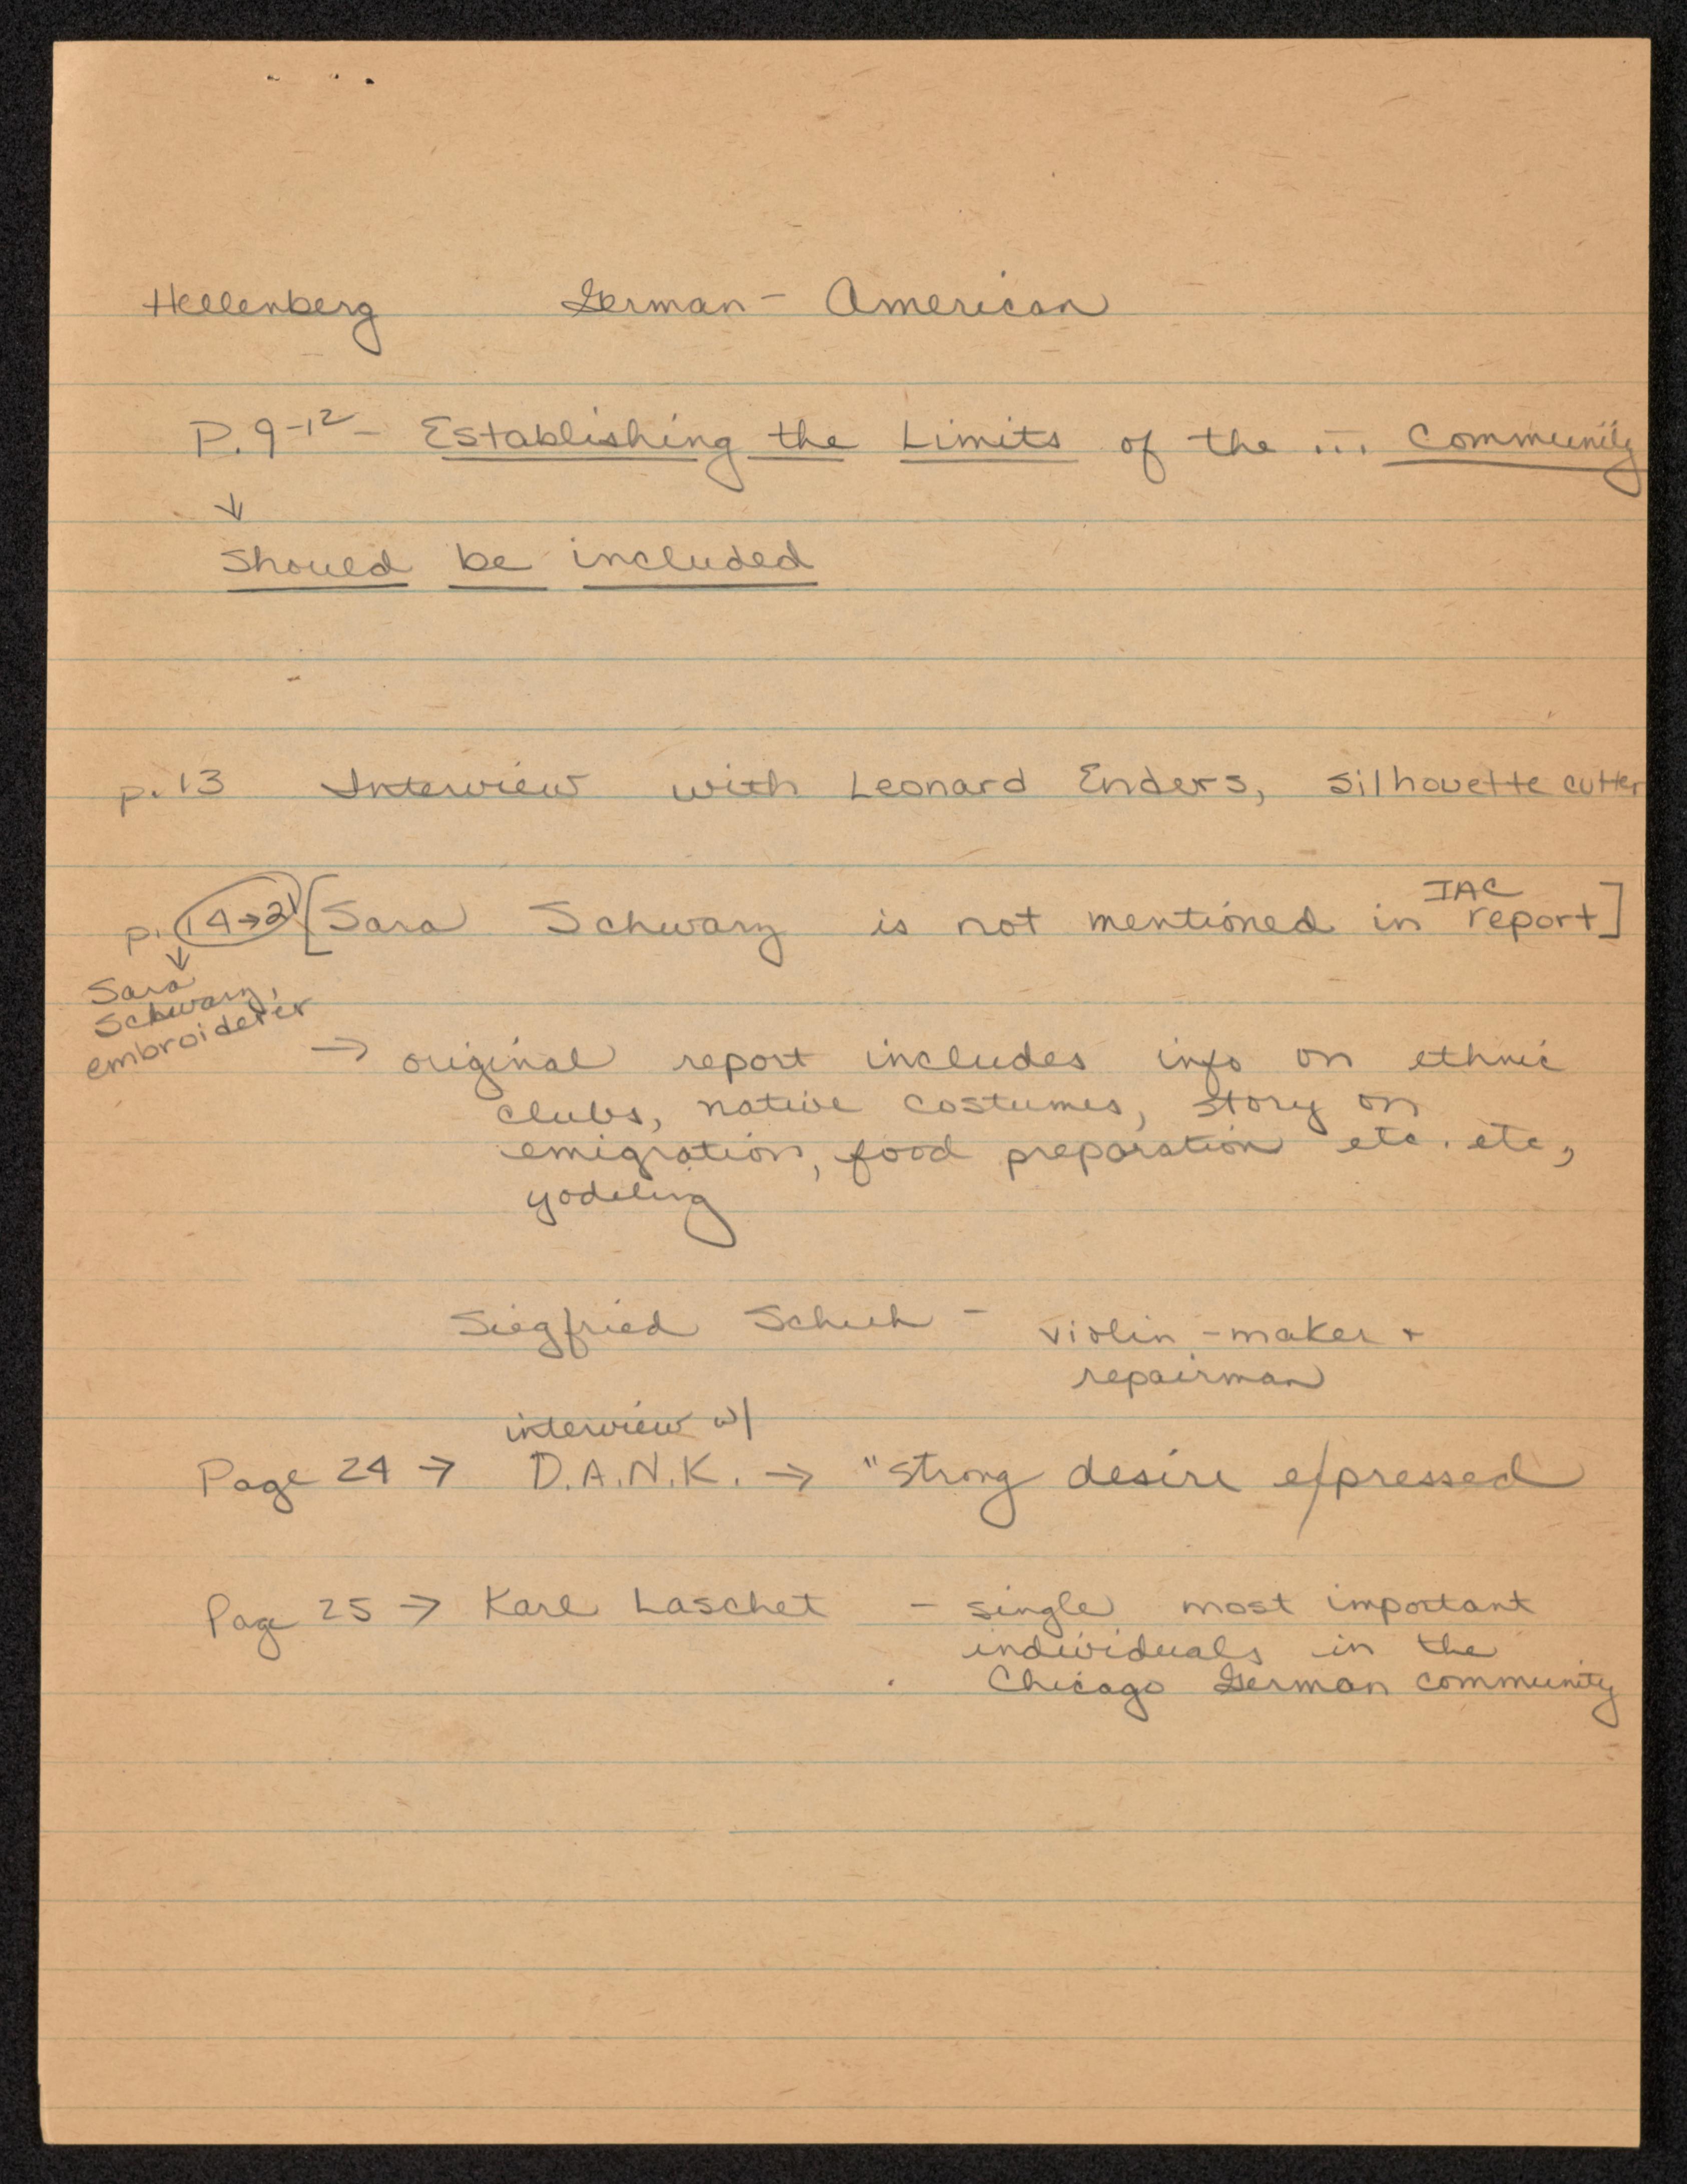 Hellenberg German - American
P. 9-12 - Establishing the Limits of the ... Community
↓
should be included
p. 13 Interview with Leonard Enders, silhouette cutter
IAC
p. 14→21 [Sara Schwarz is not mentioned in report]
↓
Sara
Schwarz,
embroiderer
→ original report includes info on ethnic
clubs, native costumes, story on
emigration, food preparation etc. etc,
yodeling
Siegfried Schuh - violin - maker +
repairman
interview w/
Page 24 → D.A.N.K. → "strong desire expressed
Page 25 → Karl Laschet - single most important
individuals in the
Chicago German community